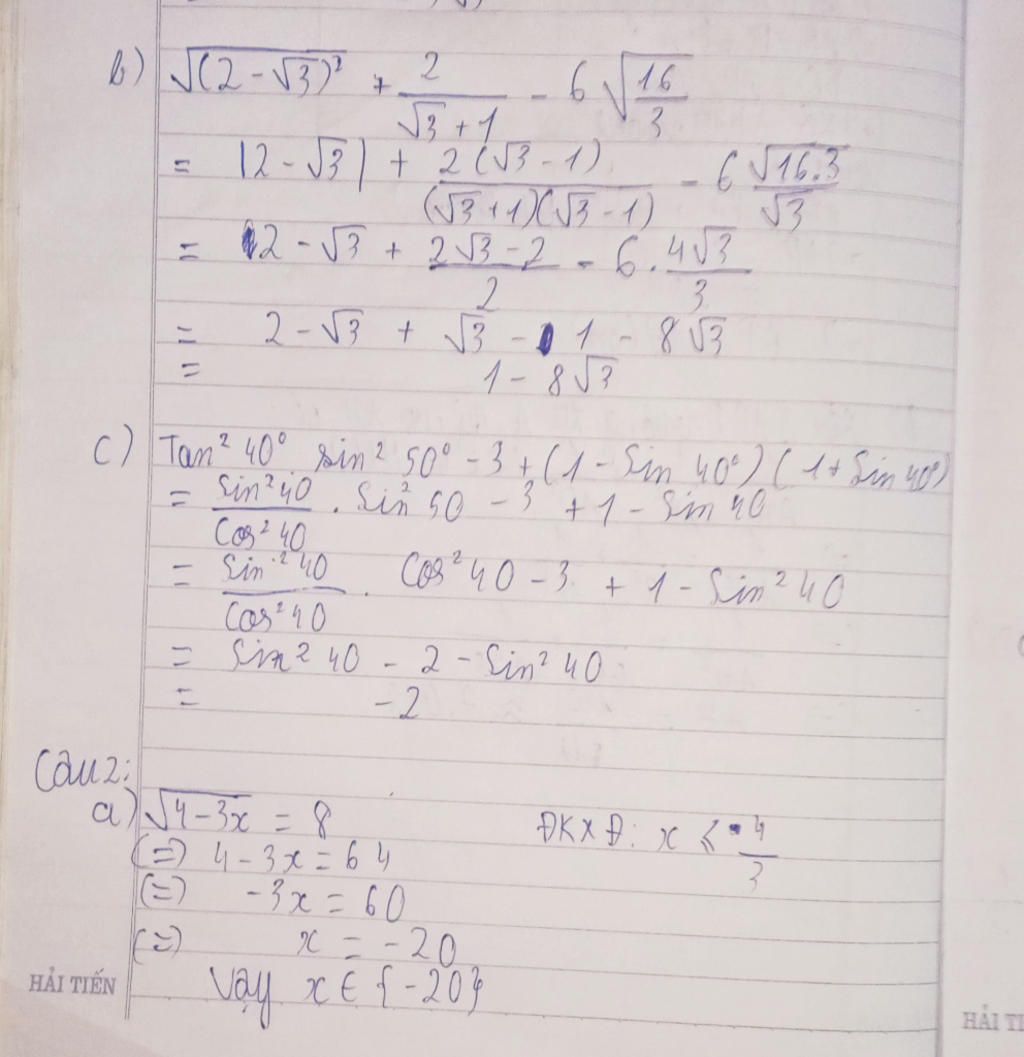 b) √(2 - √3)² + 2/(√3 + 1) - 6√(16/3)
= |2 - √3| + 2(√3 - 1)/((√3 + 1)(√3 - 1)) - 6 √16.3/√3
= 2 - √3 + (2√3 - 2)/2 - 6 . 4√3/3
= 2 - √3 + √3 - 1 - 8√3
= 1 - 8√3
c) Tan² 40° sin² 50° - 3 + (1 - Sin 40°) (1 + Sin 40°)
= Sin² 40/Cos² 40 . Sin² 50 - 3 + 1 - Sin 40
= Sin² 40/Cos² 40 . Cos² 40 - 3 + 1 - Sin² 40
= Sin² 40 - 2 - Sin² 40
= -2
Câu 2:
a) √(4 - 3x) = 8 ĐKXĐ: x ⩽ 4/3
(=) 4 - 3x = 64
(=) -3x = 60
(=) x = -20
Vậy x ∈ {-20}
HẢI TIẾN
HẢI TI